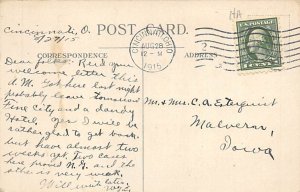 HA
Cincinnati, O.
8/28/15
POST CARD.
CORRESPONDENCE
ADDRESS
CINCINNATI, OHIO
AUG 28
12-M
1915
Dear folks: Rec'd your
welcome letter this
A.M. Got here last night
probably leave tomorrow
Fine city and a dandy
Hotel. Yes I will be
rather glad to get back.
but have almost two
weeks yet. Two cases
here proved N.G. and the
other is very weak,
Will write later,
Mr & Mrs. C. A. Esterquist
Malvern,
Iowa